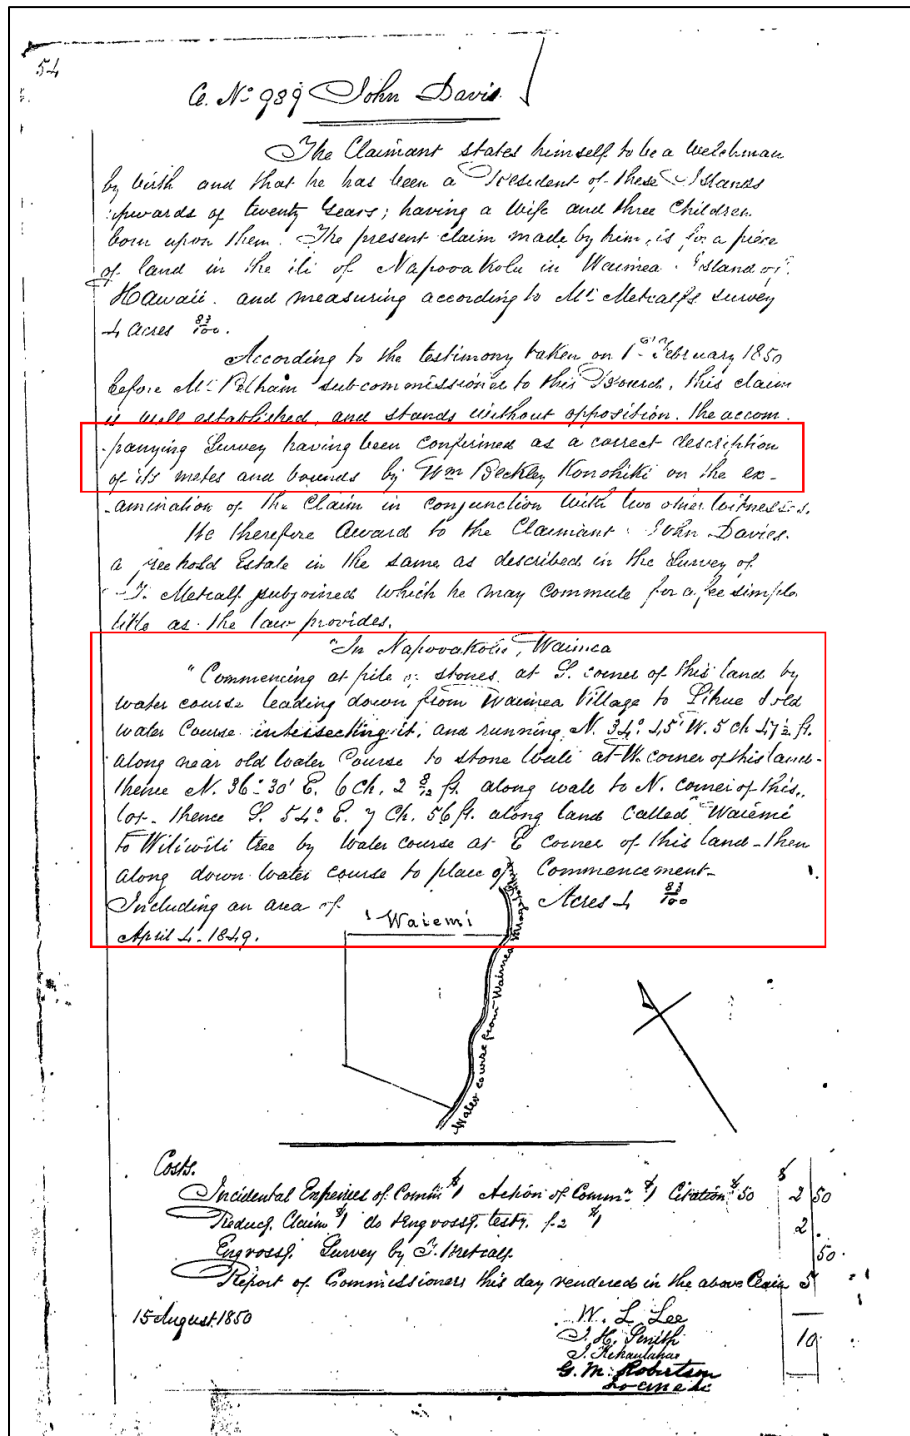 54
Cl. No 989 John Davis.
The Claimant states himself to be a Welchman
by birth and that he has been a Resident of these Islands
upwards of twenty Years; having a Wife and three Children
born upon them. The present claim made by him, is for a piece
of land in the ili of Napovakolu in Waimea Island of
Hawaii. and measuring according to Mr Metcalfs survey
4 Acres 83/100.
According to the testimony taken on 1st February 1850
before Mr Pelham subcommissioner to this Board, this claim
is well established, and stands without opposition. the accom
panying Survey having been confirmed as a correct description
of its metes and bounds by Wm Beckley Konohiki on the ex-
amination of the Claim in conjunction with two other witnesses.
We therefore Award to the Claimant John Davies.
a freehold Estate in the same as described in the Survey of
T. Metcalf subjoined which he may commute for a fee simple
title as the law provides.
"In Napovakolu, Waimea
"Commencing at pile of stones at S. corner of this land by
water course leading down from Waimea Village to Lihue & old
water Course intersecting it, and running N. 34° 45' W. 5 ch 47 1/2 ft.
along near old water Course to stone wall at W. corner of this land-
thence N. 36° 30' E. 6 Ch. 2 8/12 ft. along wall to N. corner of this
lot- thence S. 54° E. 7 Ch. 56 ft. along land called Waiemi
to Wiliwili tree by water course at E corner of this land - then
along down water course to place of Commencement-
Including an area of Acres 4 83/100
April 4. 1849.
Waiemi
Water course from Waimea
Costs. $
Incidental Expenses of Commn $1 Action of Commn $1 Citation $50 2 50
Reducg. Claim $1 do Engrossg. testy. f-2 $1 2
Engrossg. Survey by T. Metcalf 50
Report of Commissioners this day rendered in the above Claim 5
15 August 1850 W. L. Lee 10
J. H. Smith
J. Kekaulahao
G. M. Robertson